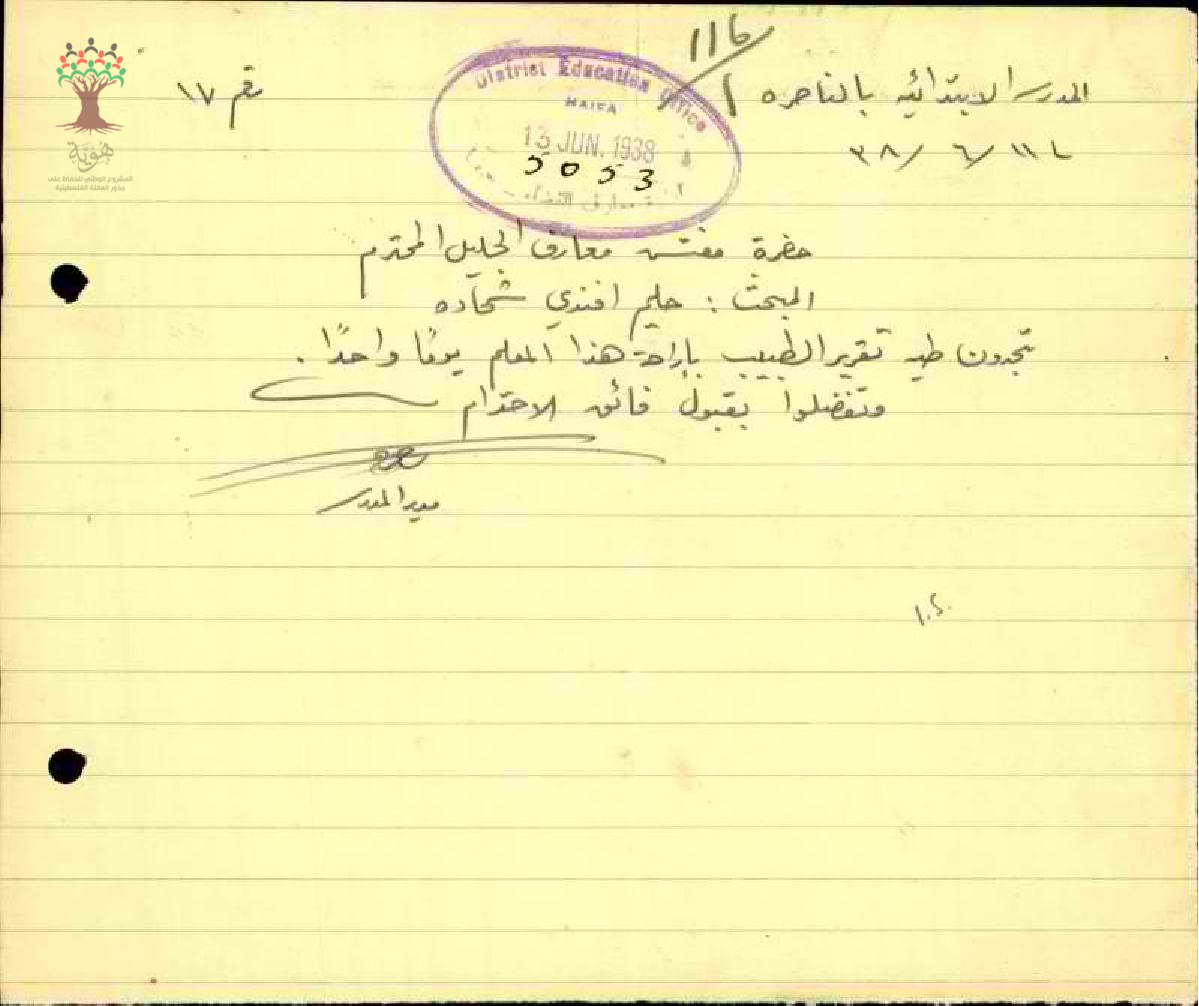 116
المدرسة الابتدائية بالناصره
رقم ١٧
١١/ ٦/ ٣٨
District Education Office
HAIFA
13 JUN. 1938
5053
حضرة مفتش معارف الجليل المحترم
المبحث : حليم افندي شحاده
تجدون طيه تقرير الطبيب بإراحة هذا المعلم يومًا واحدًا .
وتفضلوا بقبول فائق الاحترام
مدير المدرسة
هوية
المشروع الوطني للحفاظ على
جذور العائلة الفلسطينية